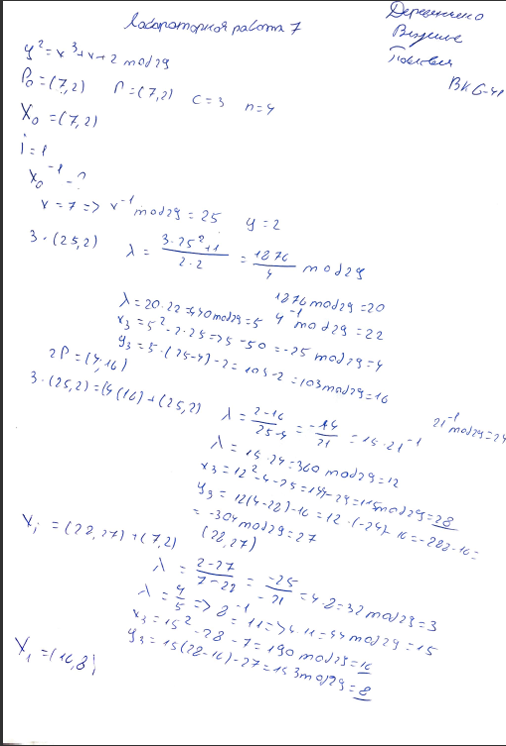 Лабораторная работа 7
y² = x³+x+2 mod 29
P₀ = (7,2) P = (7,2) c=3 n=4
ВКБ-41
X₀ = (7,2)
i = 1
X₀⁻¹ - ?
x = 7 => x⁻¹ mod 29 = 25 y = 2
3·(25,2) λ = (3·25²+1)/(2·2) = 1876/4 mod 29
1876 mod 29 = 20
4⁻¹ mod 29 = 22
λ = 20·22 = 440 mod 29 = 5
x₃ = 5² - 2·25 = 25 - 50 = -25 mod 29 = 4
y₃ = 5·(25-4)-2 = 105-2 = 103 mod 29 = 16
2P = (4,16)
3·(25,2) = (4,16)+(25,2) λ = (2-16)/(25-4) = -14/21 = 15·21⁻¹
21⁻¹ mod 29 = 24
λ = 15·24 = 360 mod 29 = 12
x₃ = 12² - 4 - 25 = 144 - 29 = 115 mod 29 = 28
y₃ = 12(4-28)-16 = 12·(-24)-16 = -288-16 =
= -304 mod 29 = 27
(28,27)
Xᵢ = (28,27)+(7,2)
λ = (2-27)/(7-28) = -25/-21 = 4·8 = 32 mod 29 = 3
λ = 4/8 => 8⁻¹ = 11 => 4·11 = 44 mod 29 = 15
x₃ = 15² - 28 - 7 = 190 mod 29 = 16
y₃ = 15(28-16)-27 = 153 mod 29 = 8
X₁ = (16,8)